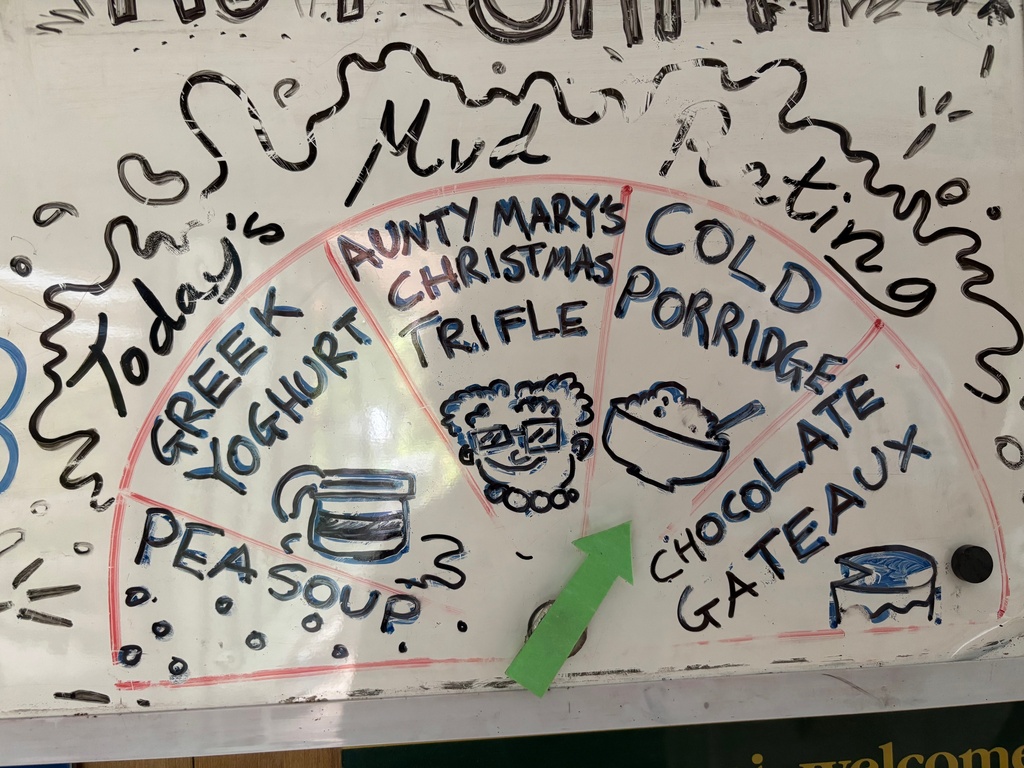 Today's Mud Rating
GREEK
YOGHURT
AUNTY MARY'S
CHRISTMAS
TRIFLE
COLD
PORRIDGE
CHOCOLATE
GATEAUX
PEA SOUP
welcome